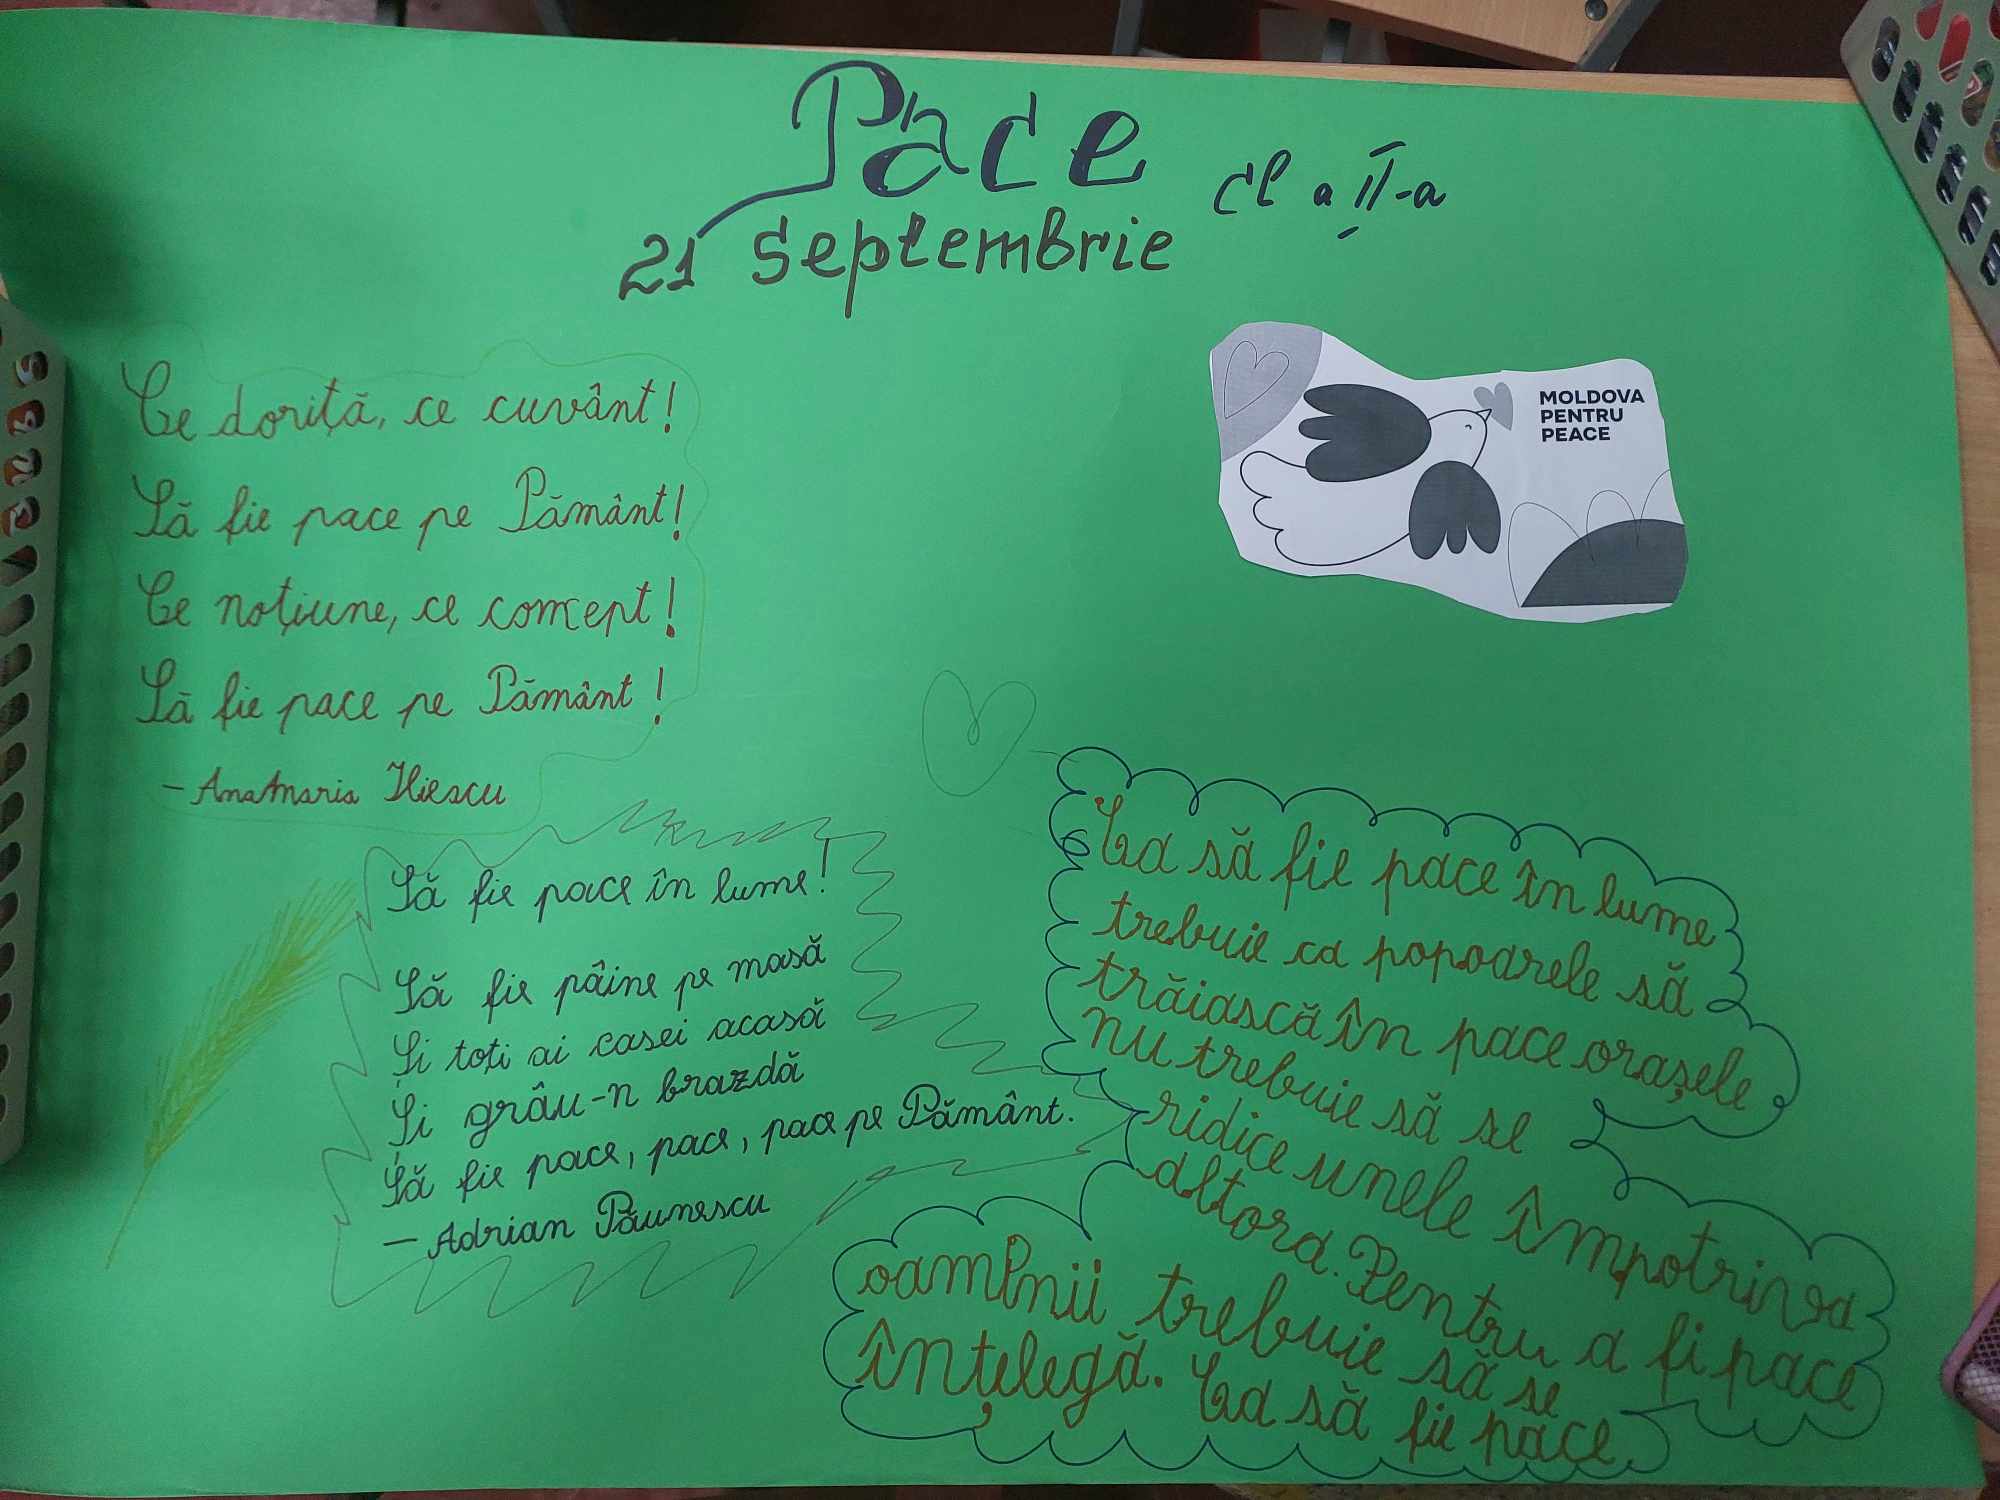 Pace
cl a II-a
21 septembrie
Ce doriță, ce cuvânt!
Să fie pace pe Pământ!
Ce noțiune, ce concept!
Să fie pace pe Pământ!
- AnaMaria Iliescu
MOLDOVA
PENTRU
PEACE
Să fie pace în lume!
Să fie pâine pe masă
Și toți ai casei acasă
Și grâu-n brazdă
Să fie pace, pace, pace pe Pământ.
- Adrian Păunescu
Ca să fie pace în lume
trebuie ca popoarele să
trăiască în pace orașele
nu trebuie să se
ridice unele împotriva
altora. Pentru a fi pace
oamenii trebuie să se
înțelegă. Ca să fie pace.